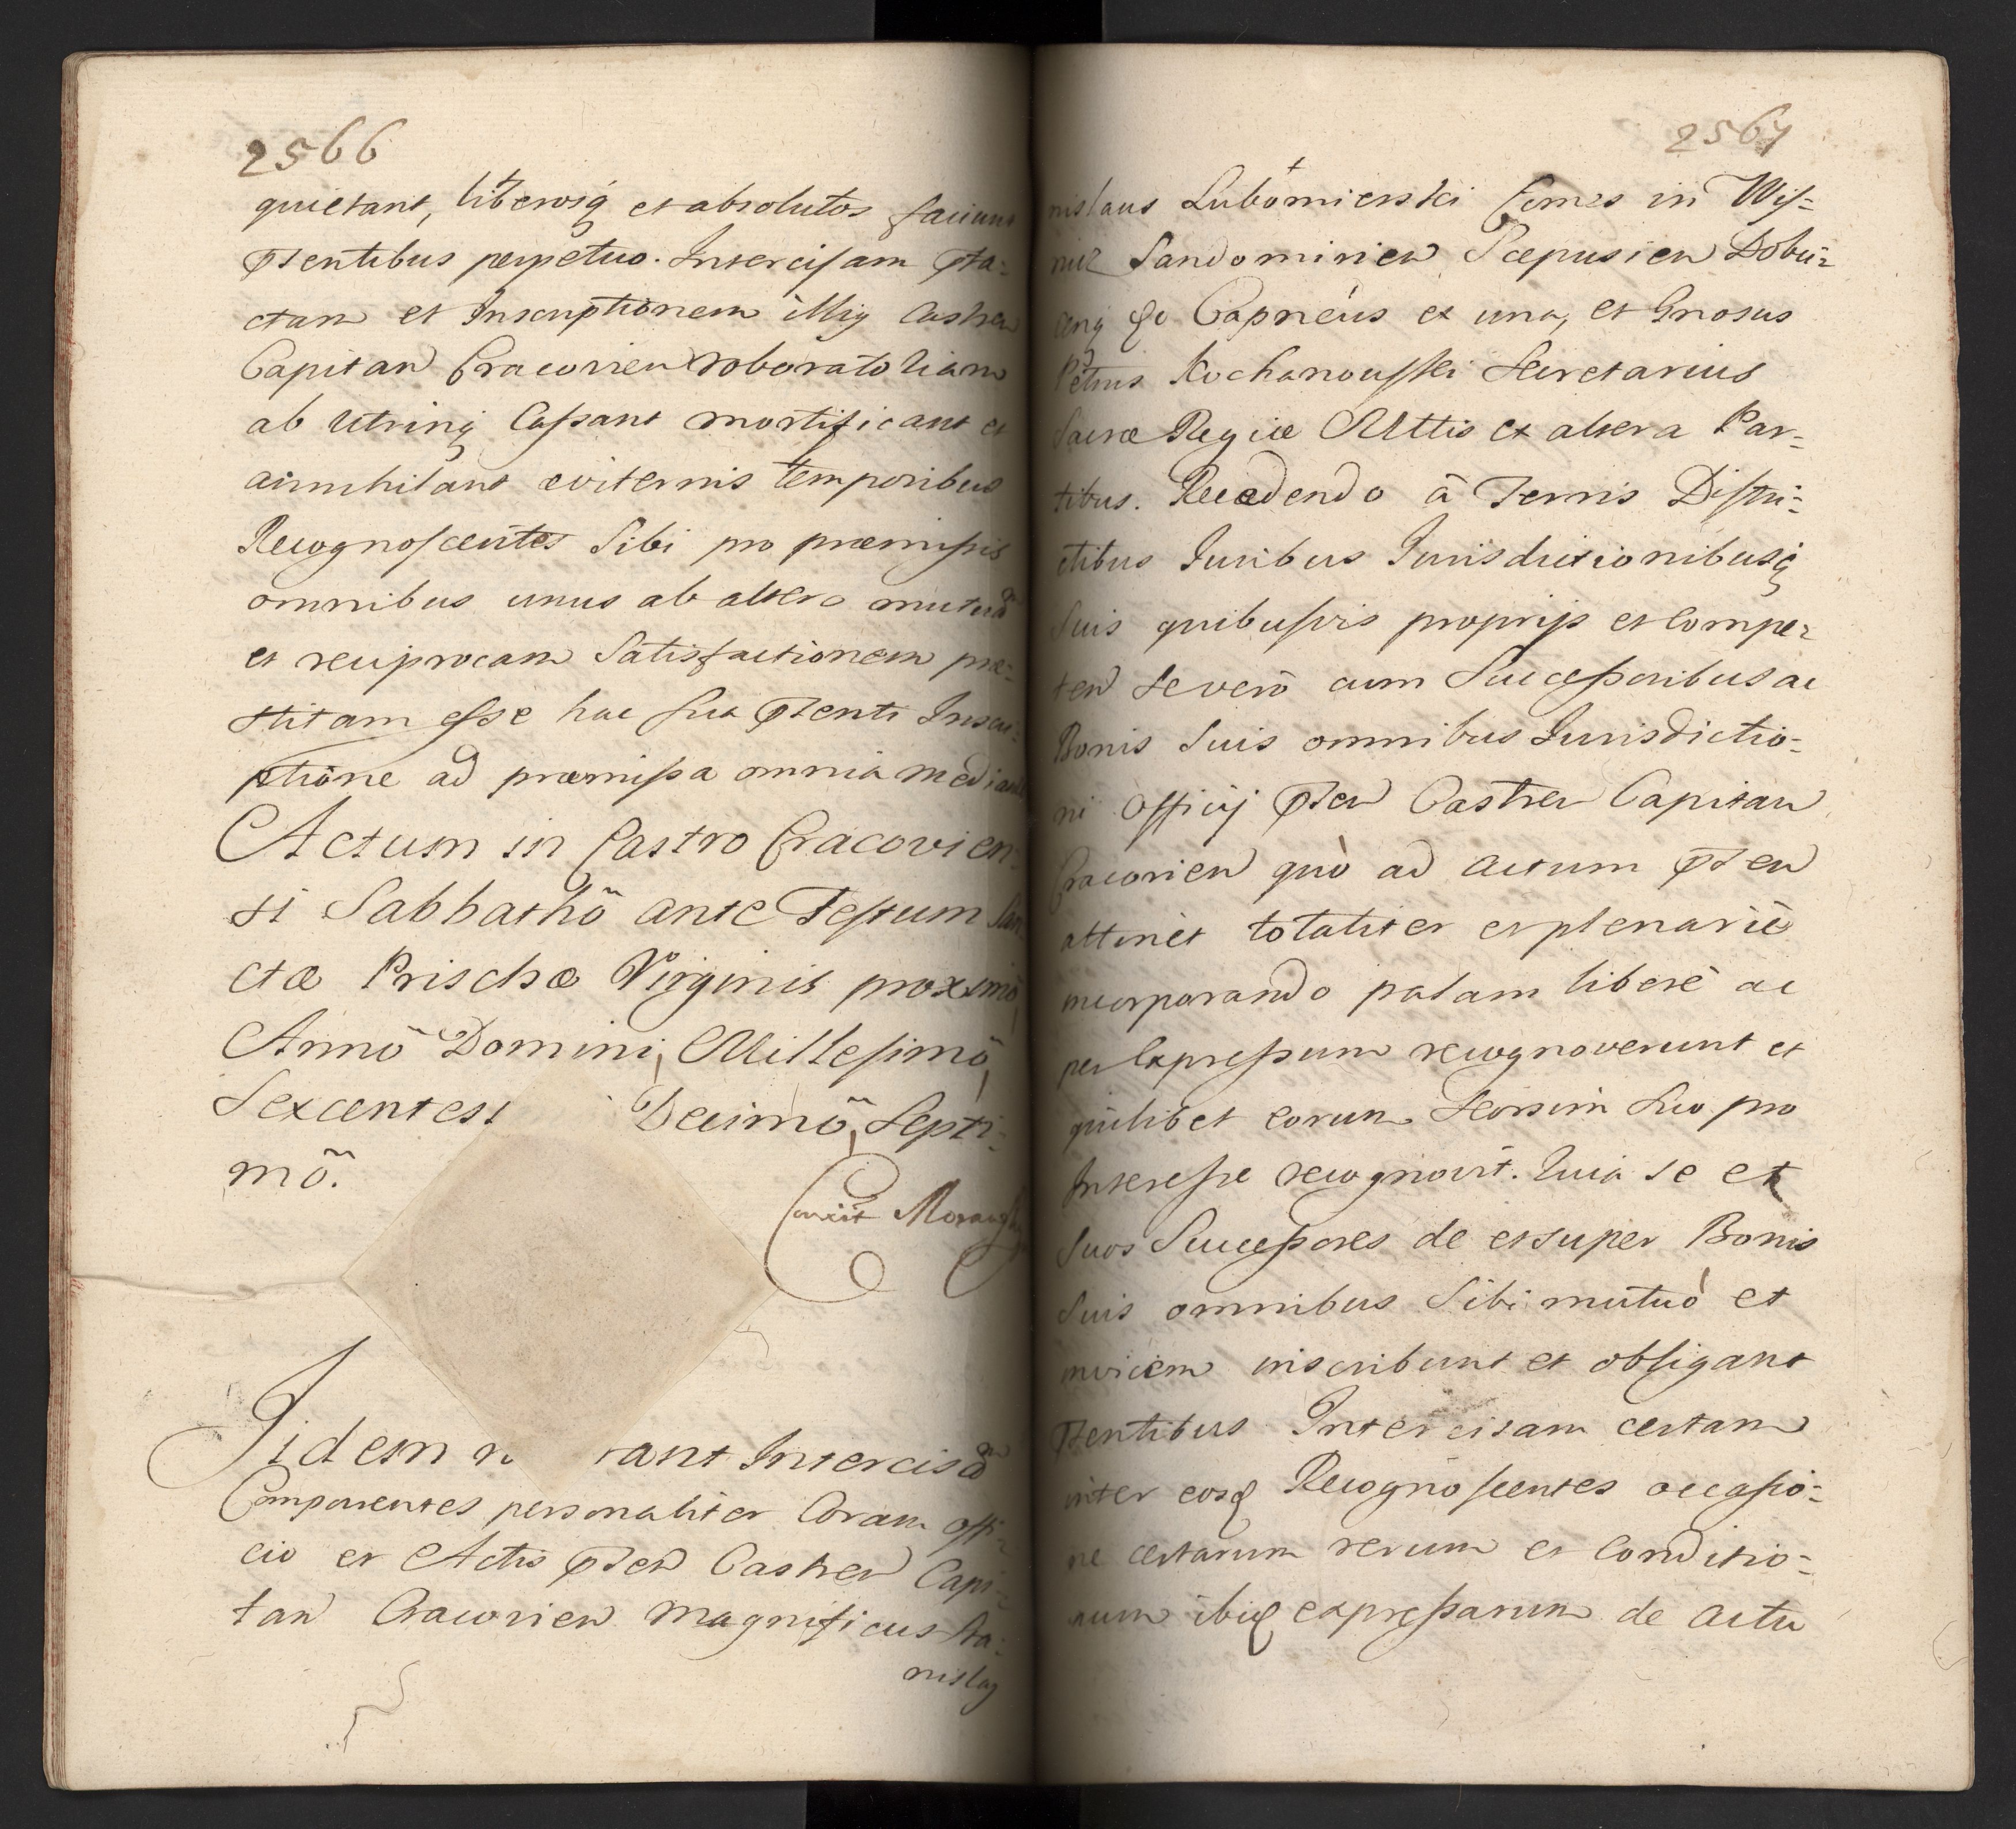 2566
quietant, liberosq et absolutos faciunt
pntentibus perpetuo. Intercisam pta-
ctam et Inscriptionem illiq Castren
Capitan Cracovien roboratoriam
ab utrinq Cassant mortificant et
annihilant æviternis temporibus
Recognoscentes Sibi pro præmissis
omnibus unus ab altero mutuã
et reciprocam Satisfactionem præ-
stitam esse hac sua pnti Inscri-
ptione ad præmissa omnia mediante
Actum in Castro Cracovien-
si Sabbathõ ante Festum San-
ctæ Prischæ Virginis proximõ
Annõ Domini, Millesimõ,
Sexcentesi Decimõ, Septi-
mõ.
Iidem rant Intercisã
Comparentes personaliter Coram Offi-
cio et Actis pnten Castren Capi-
tan Cracovien Magnificus Sta-
nislaq
2567
nislaus Lubomierski Comes in Wis-
nicz Sandomirien Scepusien Dobu-
Capneus ex una, et Gnosus
Petrus Kochanouski Secretarius
Sacræ Regiæ Mttis ex altera Par-
tibus. Recedendo à Terris Distri-
ctibus Juribus Jurisdictionibusq
Suis quibusvis proprijs et Compe-
ten se verò cum Successoribus ac
Bonis Suis omnibus Jurisdictio-
ni Officij pnten Castren Capitan
Cracovien quò ad actum pnten
attinet totaliter et plenarie
incorporando palam liberè ac
per Expressum recognoverunt et
quilibet eorum Seorsim suo pro
Interesse recognovit. Quia se et
Suos Successores de et super Bonis
Suis omnibus Sibi mutuò et
invicem inscribunt et obligant
pntentibus Intercisam certam
inter eosq Recognoscentes occasio-
ne certarum rerum et Conditio-
num ibiq expressarum de actu